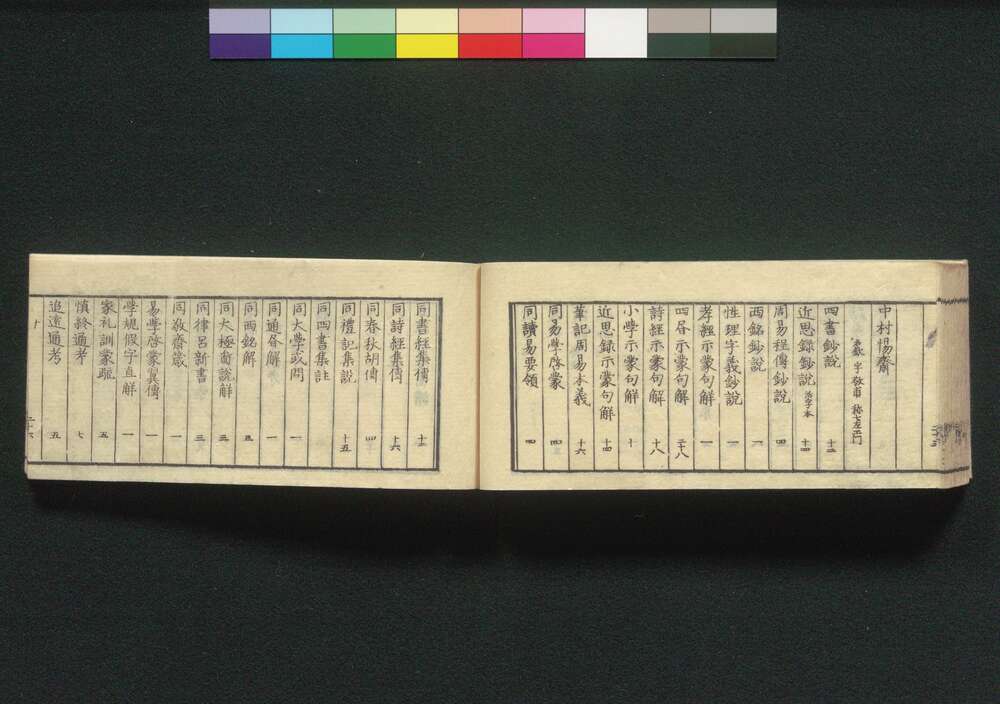 中村惕齋
之欽 字敬甫 称七左エ門
四書鈔説 十二
近思録鈔説 活字本 十四
周易程傳鈔説 四
西銘鈔説 一
性理字義鈔説 一
孝經示蒙句解 一
四書示蒙句解 二十八
詩經示蒙句解 十八
小學示蒙句解 十
近思録示蒙句解 十四
筆記周易本義 十六
同易學啓蒙 四
同讀易要領 四
同書經集傳 十二
同詩經集傳 十六
同春秋胡傳 四
同禮記集説 十五
同四書集註
同大學或問 一
同通書解 一
同西銘解
同大極圖説解
同律呂新書 二
同敬齋箴 一
易學啓蒙翼傳 一
學規假字直解 一
家礼訓蒙疏 五
慎終通考 七
追遠通考 五
二十六